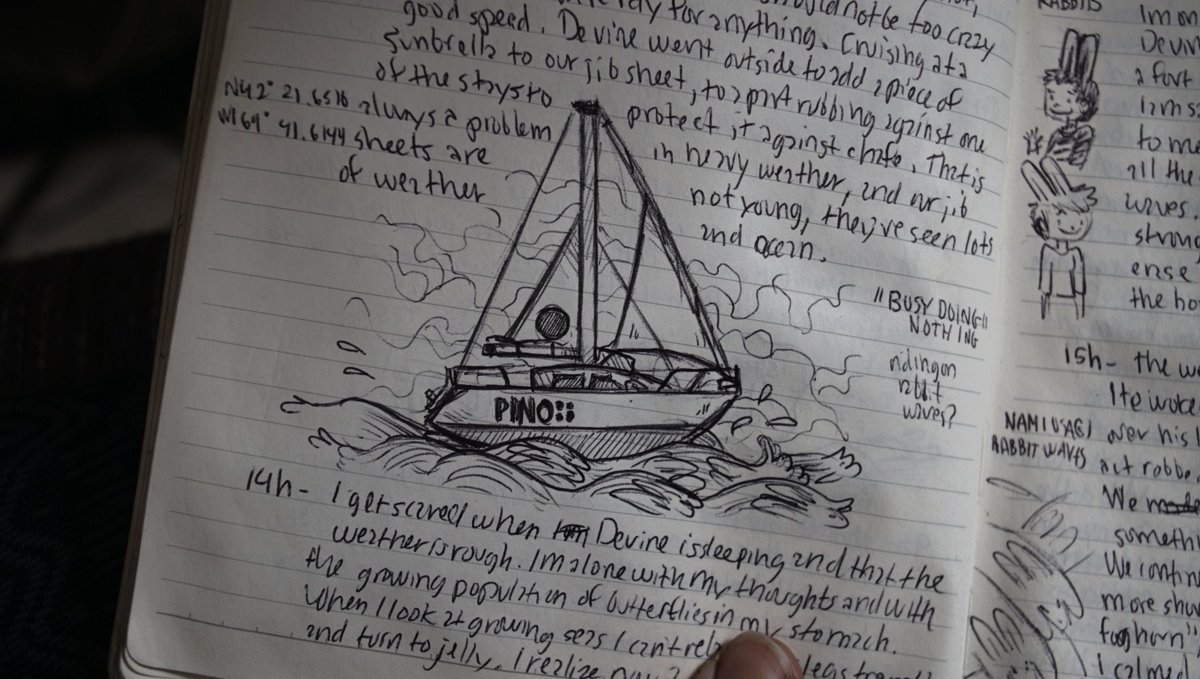 for anything. could not be too crazy
good speed. Devine went outside to add a piece of
Sunbrella to our jib sheet, to a part rubbing against one
of the stays to protect it against chafe. That is
always a problem in heavy weather, and our jib
sheets are not young, they've seen lots
of weather and ocean.
N42° 21.6516
W164° 41.6144
"BUSY DOING
NOTHING"
riding on
rabbit
waves?
PINO
14h - I get scared when Devine is sleeping and that the
weather is rough. Im alone with my thoughts and with
the growing population of butterflies in my stomach.
When I look at growing seas I can't
and turn to jelly. I realize
RABBITS
Im on
Devin
a fort
to me
all the
waves
strong
ense
the ho
15h - the w
He woke
NAMI USAGI
RABBIT WAVES
over his
act robbe
We
somethi
We contin
more shu
foghorn"
I calmed